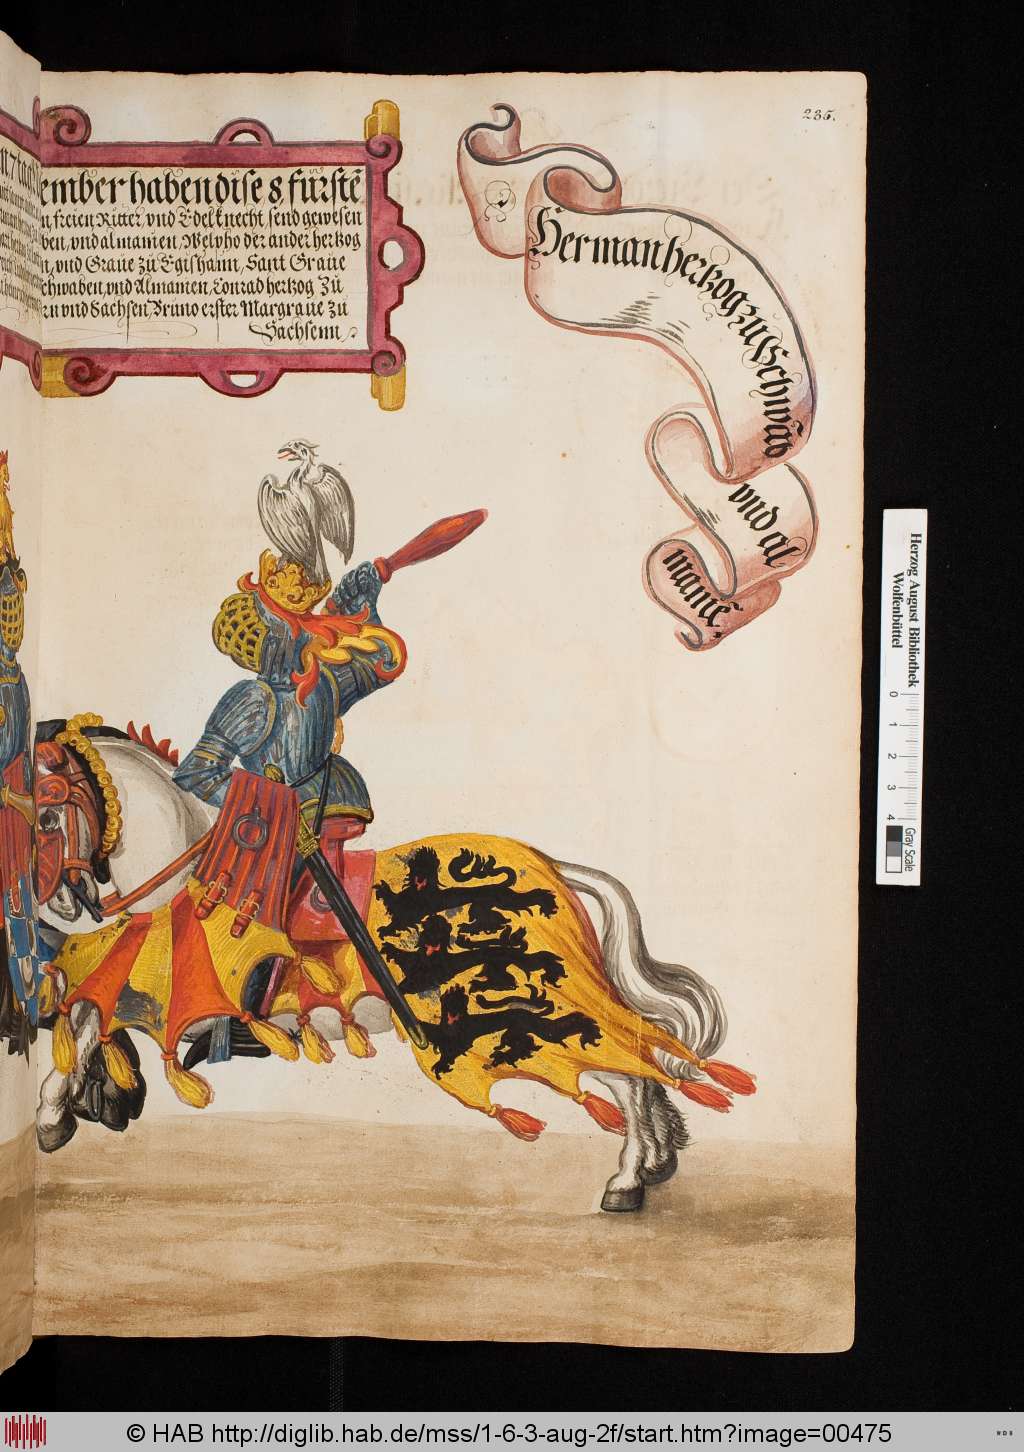 235.
ember haben dise 8 fürstē
n freien Ritter, vnd Edelknecht, send gewesen
ben, vnd almanien, Welpho der ander hertzog
n, vnd Graue zu Egishaim, Sant Graue
chwaben, vnd Almanien, Conrad hertzog Zu
rn vnd Sachsen, Bruno erster Margraue zu
Sachsenn
Herman hertzog zu Schwāb
vnd al
maniē,
Herzog August Bibliothek
Wolfenbüttel
0 1 2 3 4
Gray Scale
© HAB http://diglib.hab.de/mss/1-6-3-aug-2f/start.htm?image=00475